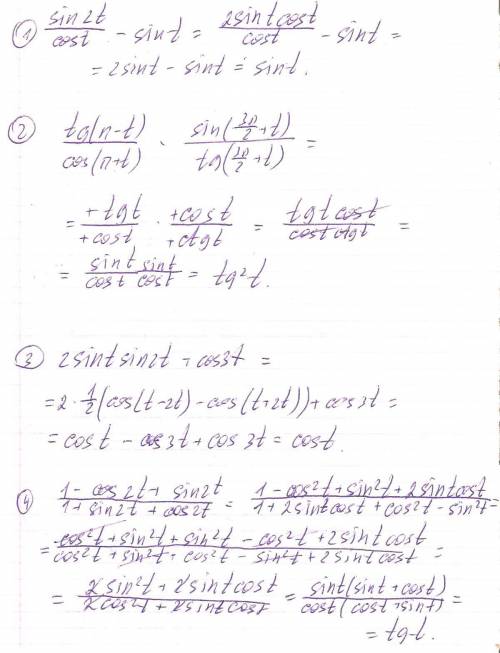 ① sin2t/cost - sint = 2sintcost/cost - sint =
= 2sint - sint = sint.
② tg(π-t)/cos(π+t) · sin(3π/2+t)/tg(3π/2+t) =
= +tgt/+cost · +cost/+ctgt = tgt cost/cost ctgt =
= sint sint/cost cost = tg²t.
③ 2sintsin2t + cos3t =
= 2·1/2(cos(t-2t) - cos(t+2t)) + cos3t =
= cost - cos3t + cos3t = cost.
④ 1-cos2t+sin2t/1+sin2t+cos2t = 1-cos²t+sin²t+2sintcost/1+2sintcost+cos²t-sin²t =
= cos²t+sin²t+sin²t-cos²t+2sintcost/cos²t+sin²t+cos²t-sin²t+2sintcost =
= 2sin²t+2sintcost/2cos²t+2sintcost = sint(sint+cost)/cost(cost+sint) =
= tgt.